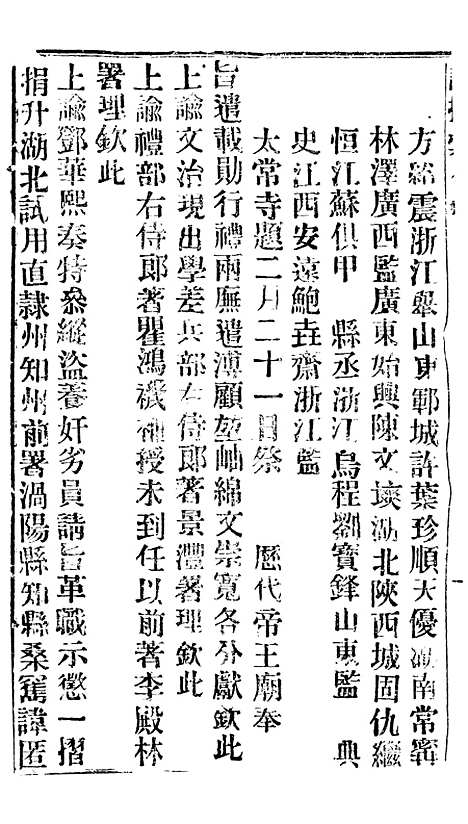 方紹震浙江舉山東鄆城許葉珍順天優湖南常寧
林澤廣西監廣東始興陳文垓湖北陝西城固仇繼
恒江蘇俱甲　縣丞浙江烏程劉寶鋒山東監　典
史江西安遠鮑垚齋浙江監
太常寺題二月二十一日祭　歷代帝王廟奉
旨遣載勛行禮兩廡遣溥顧堃岫綿文崇寬各分獻欽此
上諭文治現出學差兵部左侍郎著景灃署理欽此
上諭禮部右侍郎著瞿鴻禨補授未到任以前著李殿林
署理欽此
上諭鄧華熙奏特叅縱盜養奸劣員請旨革職示懲一摺
捐升湖北試用直隸州知州前署渦陽縣知縣桑寯諱匿